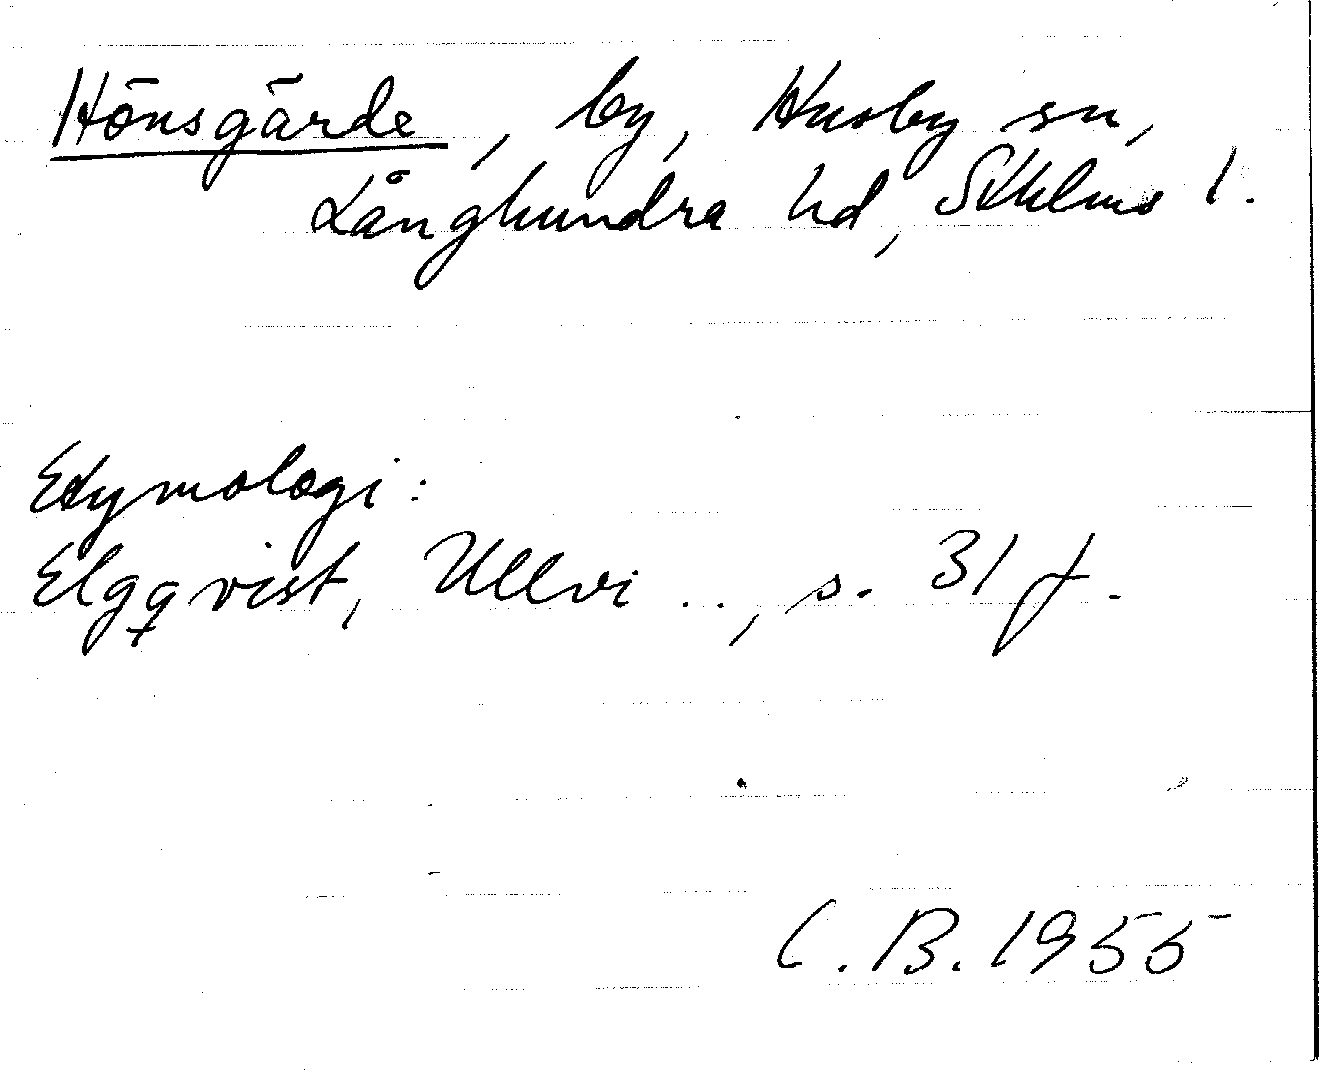 Hönsgärde, by, Husby sn,
Långhundra hd, Sthlms l.
Etymologi:
Elgqvist, Ullvi .., s. 31 f.
C.B. 1955